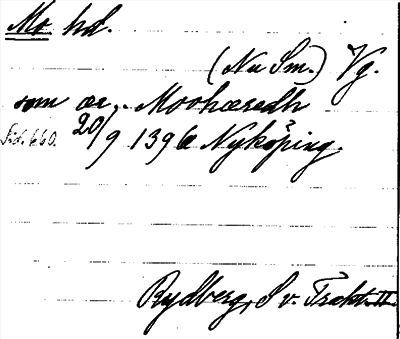 Mo hd.
(Nu Sm.) Vg.
som æ, Moohæredh
Sid. 660. 20/9 1396 Nyköping.
Rydberg, S v. Trakt. II.